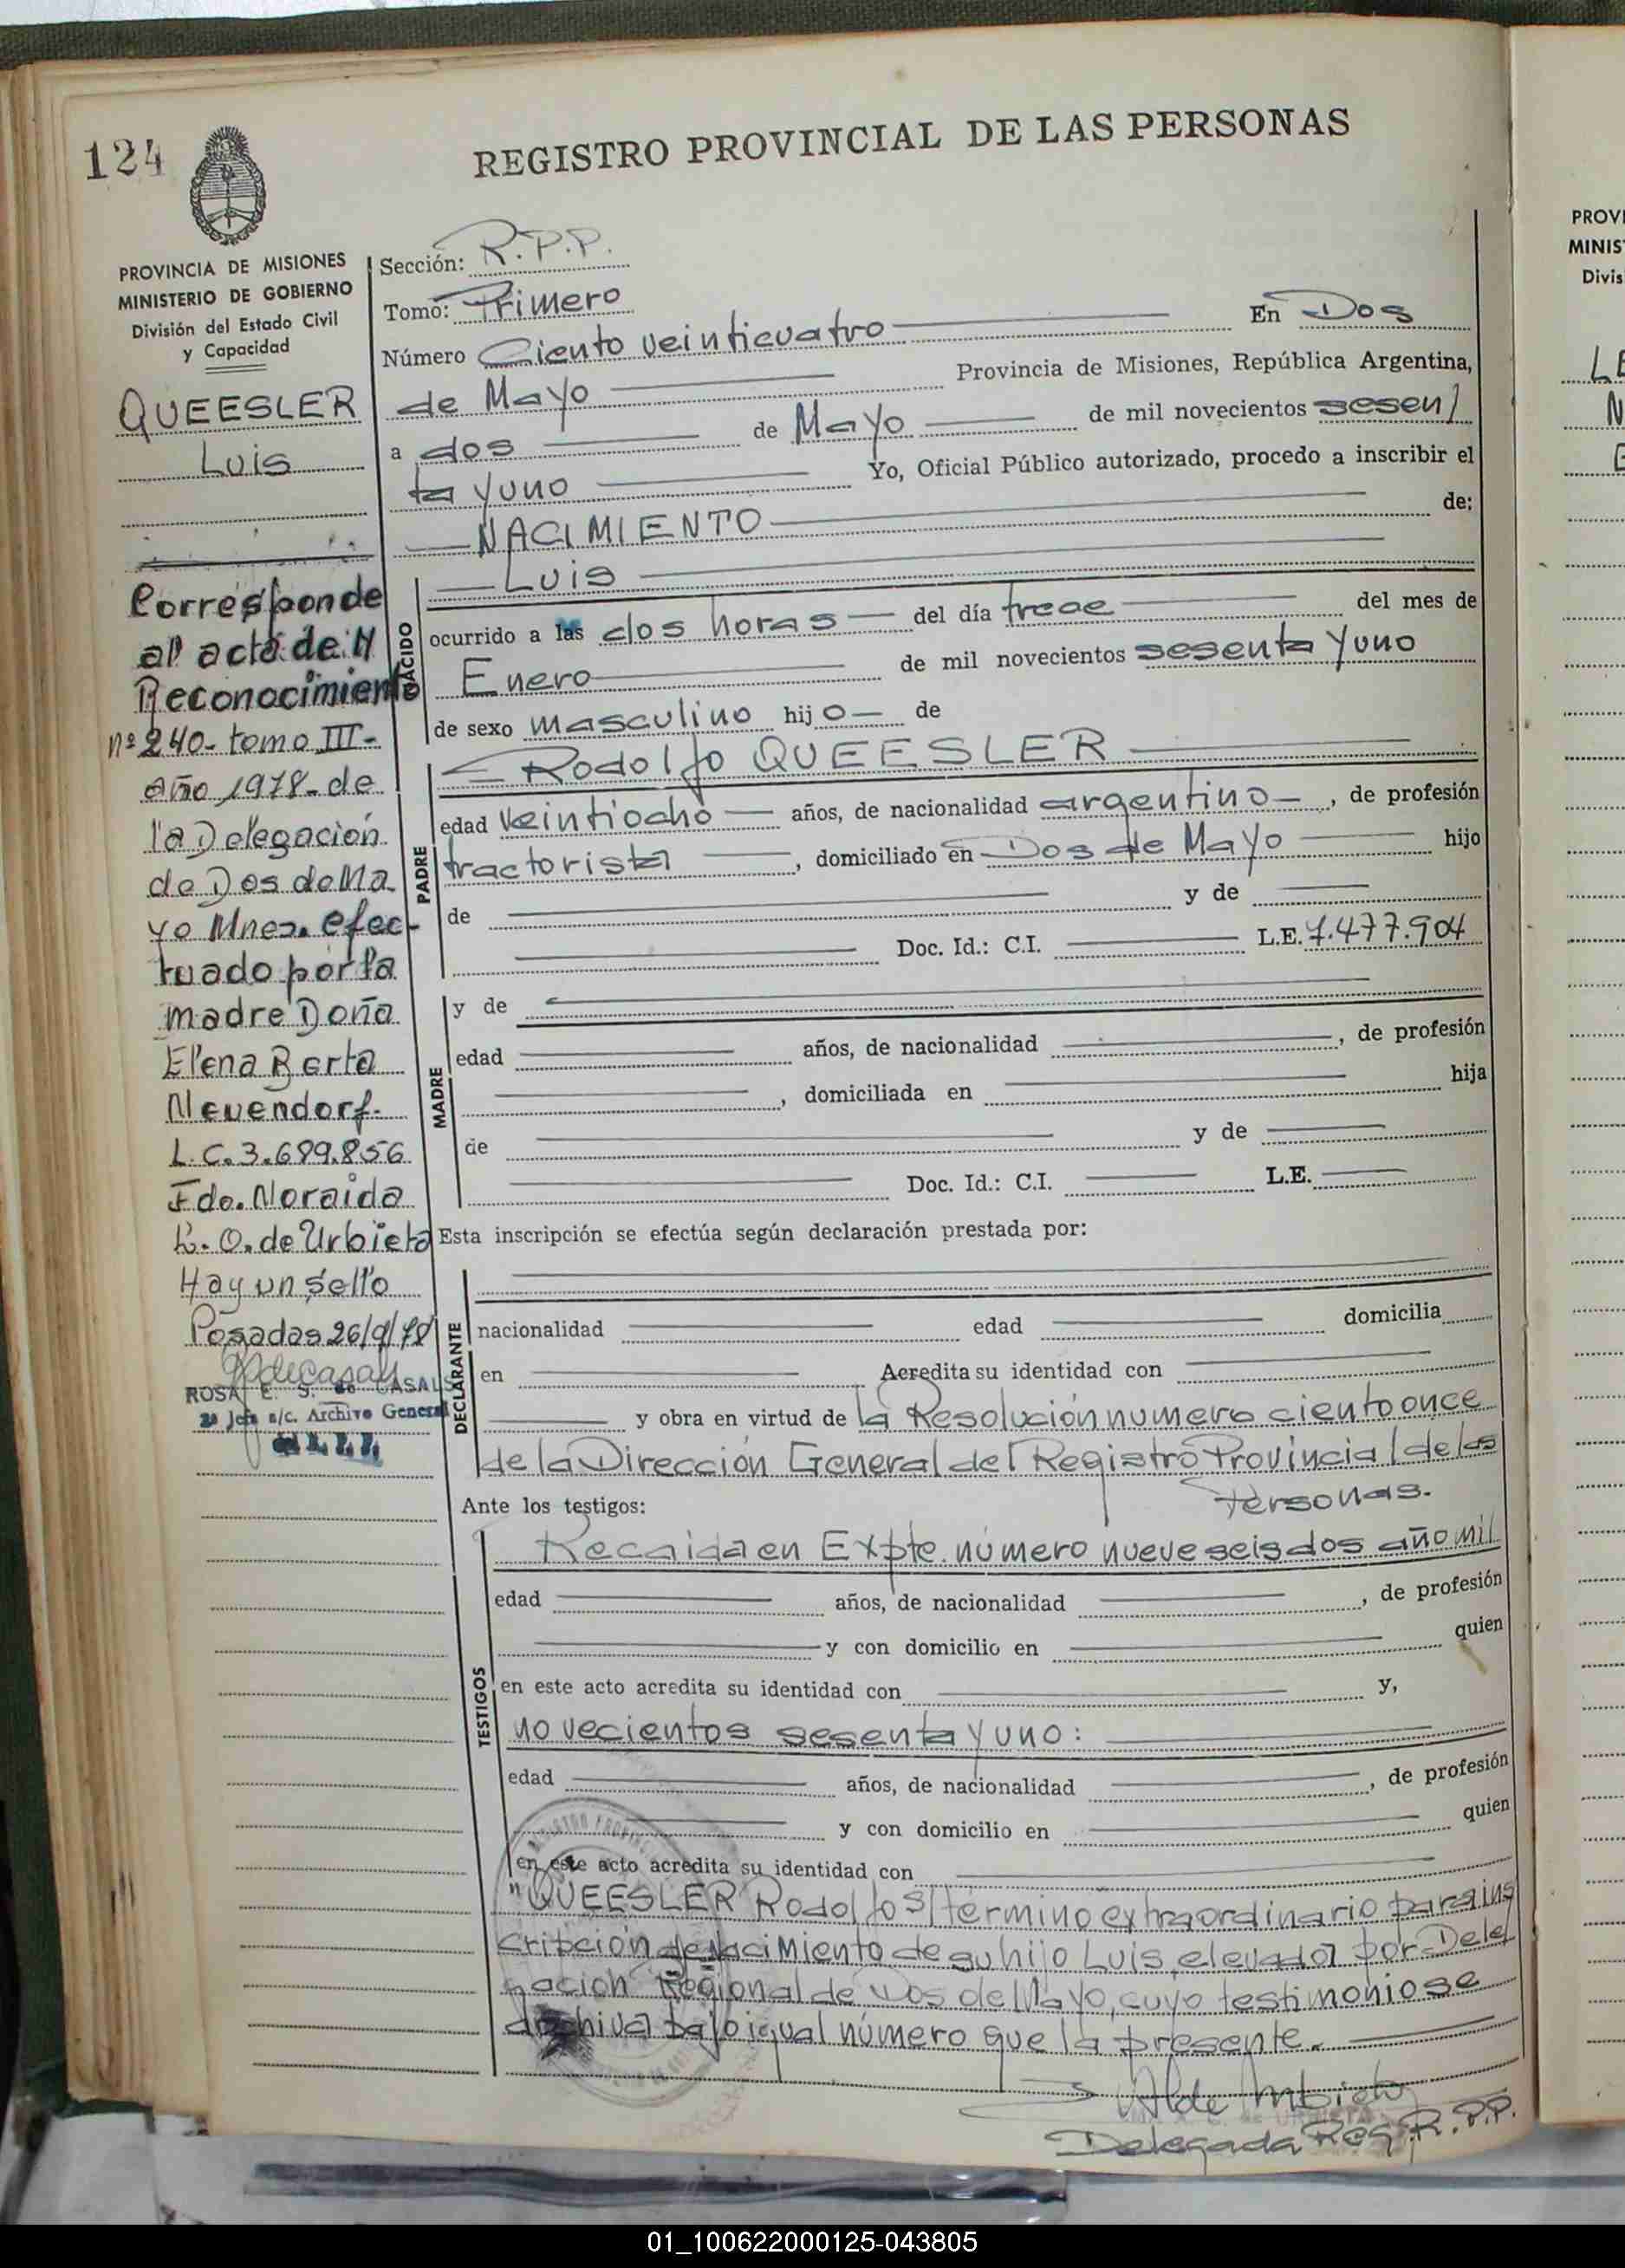 124
REGISTRO PROVINCIAL DE LAS PERSONAS
PROVINCIA DE MISIONES
MINISTERIO DE GOBIERNO
División del Estado Civil
y Capacidad
QUEESLER
Luis
Corresponde
al acta de N
Reconocimiento
nº 240- tomo III-
año 1978- de
la Delegación
de Dos de Ma
yo Mnes. efec-
tuado por la
madre Doña
Elena Berta
Neuendorf.
L.C. 3.689.856
Fdo. Noraida
E. O. de Urbieta
Hay un sello
Posadas 26/9/78
ROSA E. S. de CASALS
2a Jefe a/c. Archivo General
Sección: R.P.P.
Tomo: Primero
Número Ciento veinticuatro En Dos
de Mayo Provincia de Misiones, República Argentina,
a dos de Mayo de mil novecientos sesen
ta y uno Yo, Oficial Público autorizado, procedo a inscribir el
NACIMIENTO de:
Luis
NACIDO
ocurrido a las dos horas del día trece del mes de
Enero de mil novecientos sesenta y uno
de sexo masculino hijo de
PADRE
Rodolfo QUEESLER
edad veintiocho años, de nacionalidad argentino, de profesión
tractorista, domiciliado en Dos de Mayo hijo
de y de
Doc. Id.: C.I. L.E. 7.477.904
MADRE
y de
edad años, de nacionalidad , de profesión
, domiciliada en hija
de y de
Doc. Id.: C.I. L.E.
Esta inscripción se efectúa según declaración prestada por:
DECLARANTE
nacionalidad edad domicilia
en Acredita su identidad con
y obra en virtud de la Resolución numero ciento once
de la Dirección General del Registro Provincial de las
Personas.
Ante los testigos:
TESTIGOS
Recaida en Expte. número nueve seis dos año mil
edad años, de nacionalidad , de profesión
y con domicilio en quien
en este acto acredita su identidad con y,
novecientos sesenta y uno:
edad años, de nacionalidad , de profesión
y con domicilio en quien
en este acto acredita su identidad con
"QUEESLER Rodolfo s/termino extraordinario para ins
cripción de nacimiento de su hijo Luis, elevada por Dele
gación Regional de Dos de Mayo, cuyo testimonio se
archiva bajo igual número que la presente.
Delegada Reg. R.P.P.
PROVI
MINIS
Divis
LE
N
01_100622000125-043805